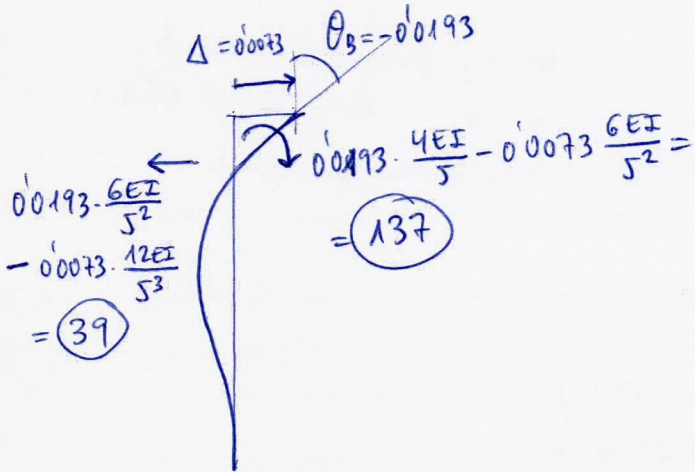 Δ = 0'0073
θ_B = -0'0193
0'0193 · 4EI/5 - 0'0073 6EI/5² =
= 137
0'0193 · 6EI/5²
- 0'0073 · 12EI/5³
= 39